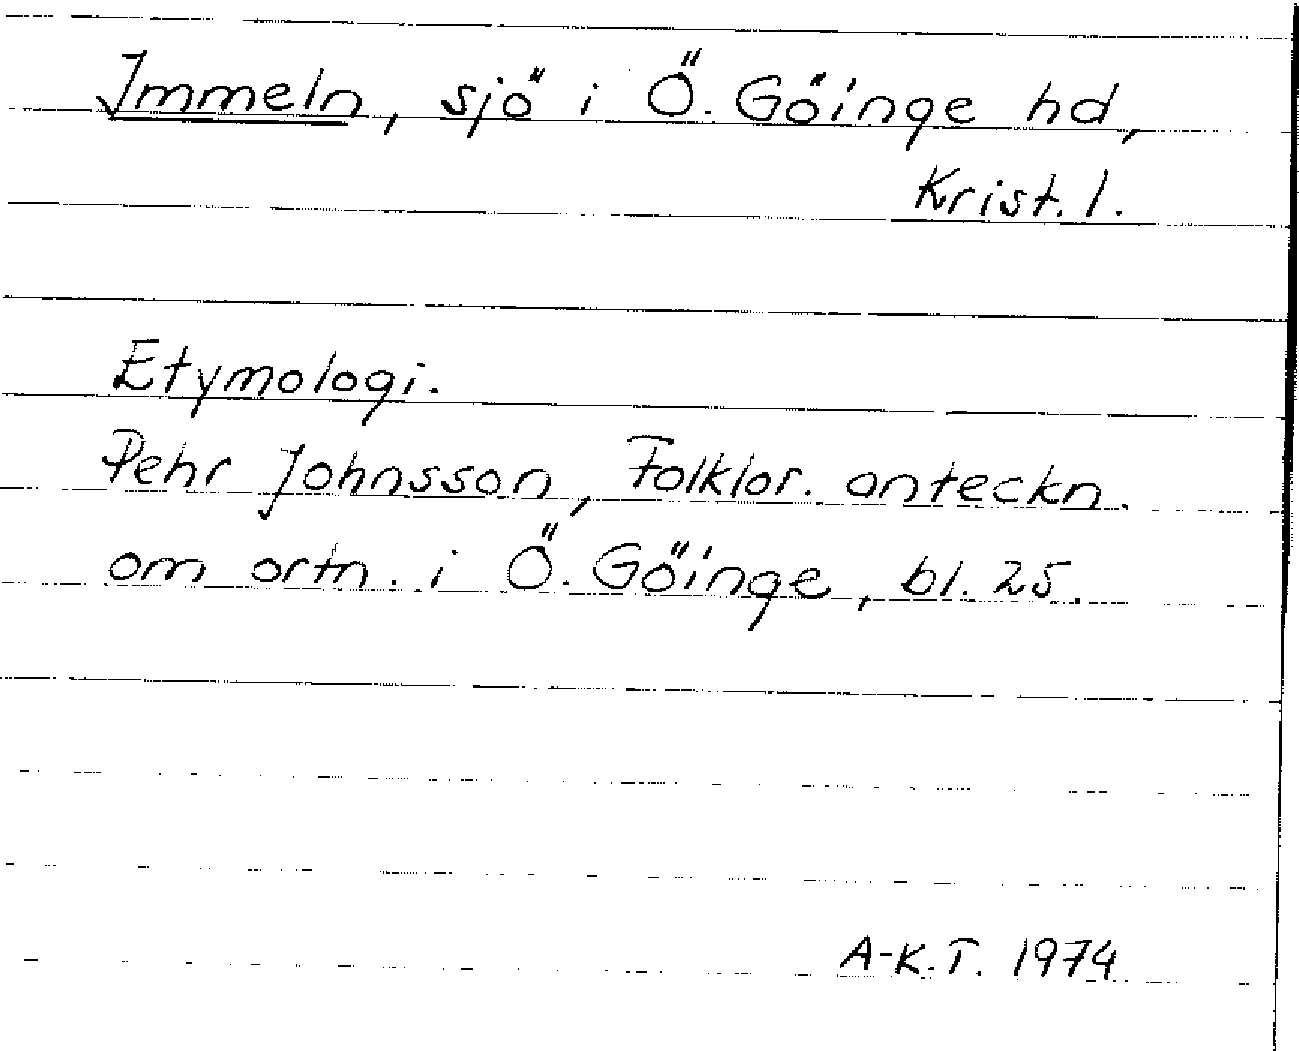 Immeln, sjö i Ö. Göinge hd,
Krist. l.
Etymologi.
Pehr Johnsson, Folklor. anteckn.
om ortn. i Ö. Göinge, bl. 25.
A-K.T. 1974